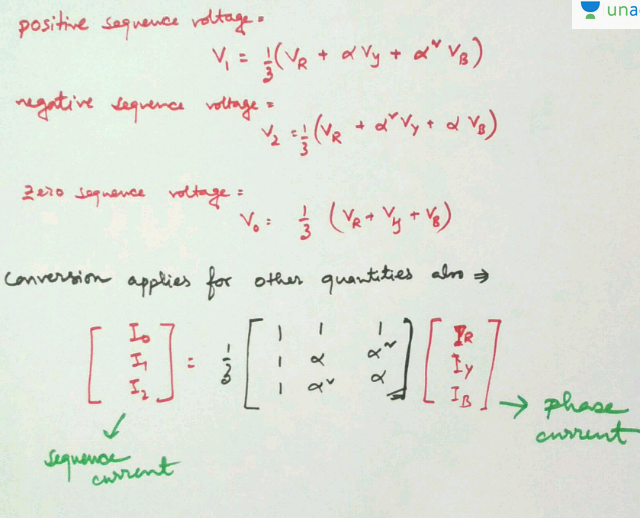 una
positive sequence voltage =
V₁ = 1/3 (V_R + α V_y + α² V_B)
negative sequence voltage =
V₂ = 1/3 (V_R + α² V_y + α V_B)
zero sequence voltage =
V₀ = 1/3 (V_R + V_y + V_B)
conversion applies for other quantities also ⇒
[I₀ I₁ I₂] = 1/3 [1 1 1; 1 α α²; 1 α² α] [I_R I_y I_B]
→ phase
current
sequence
current